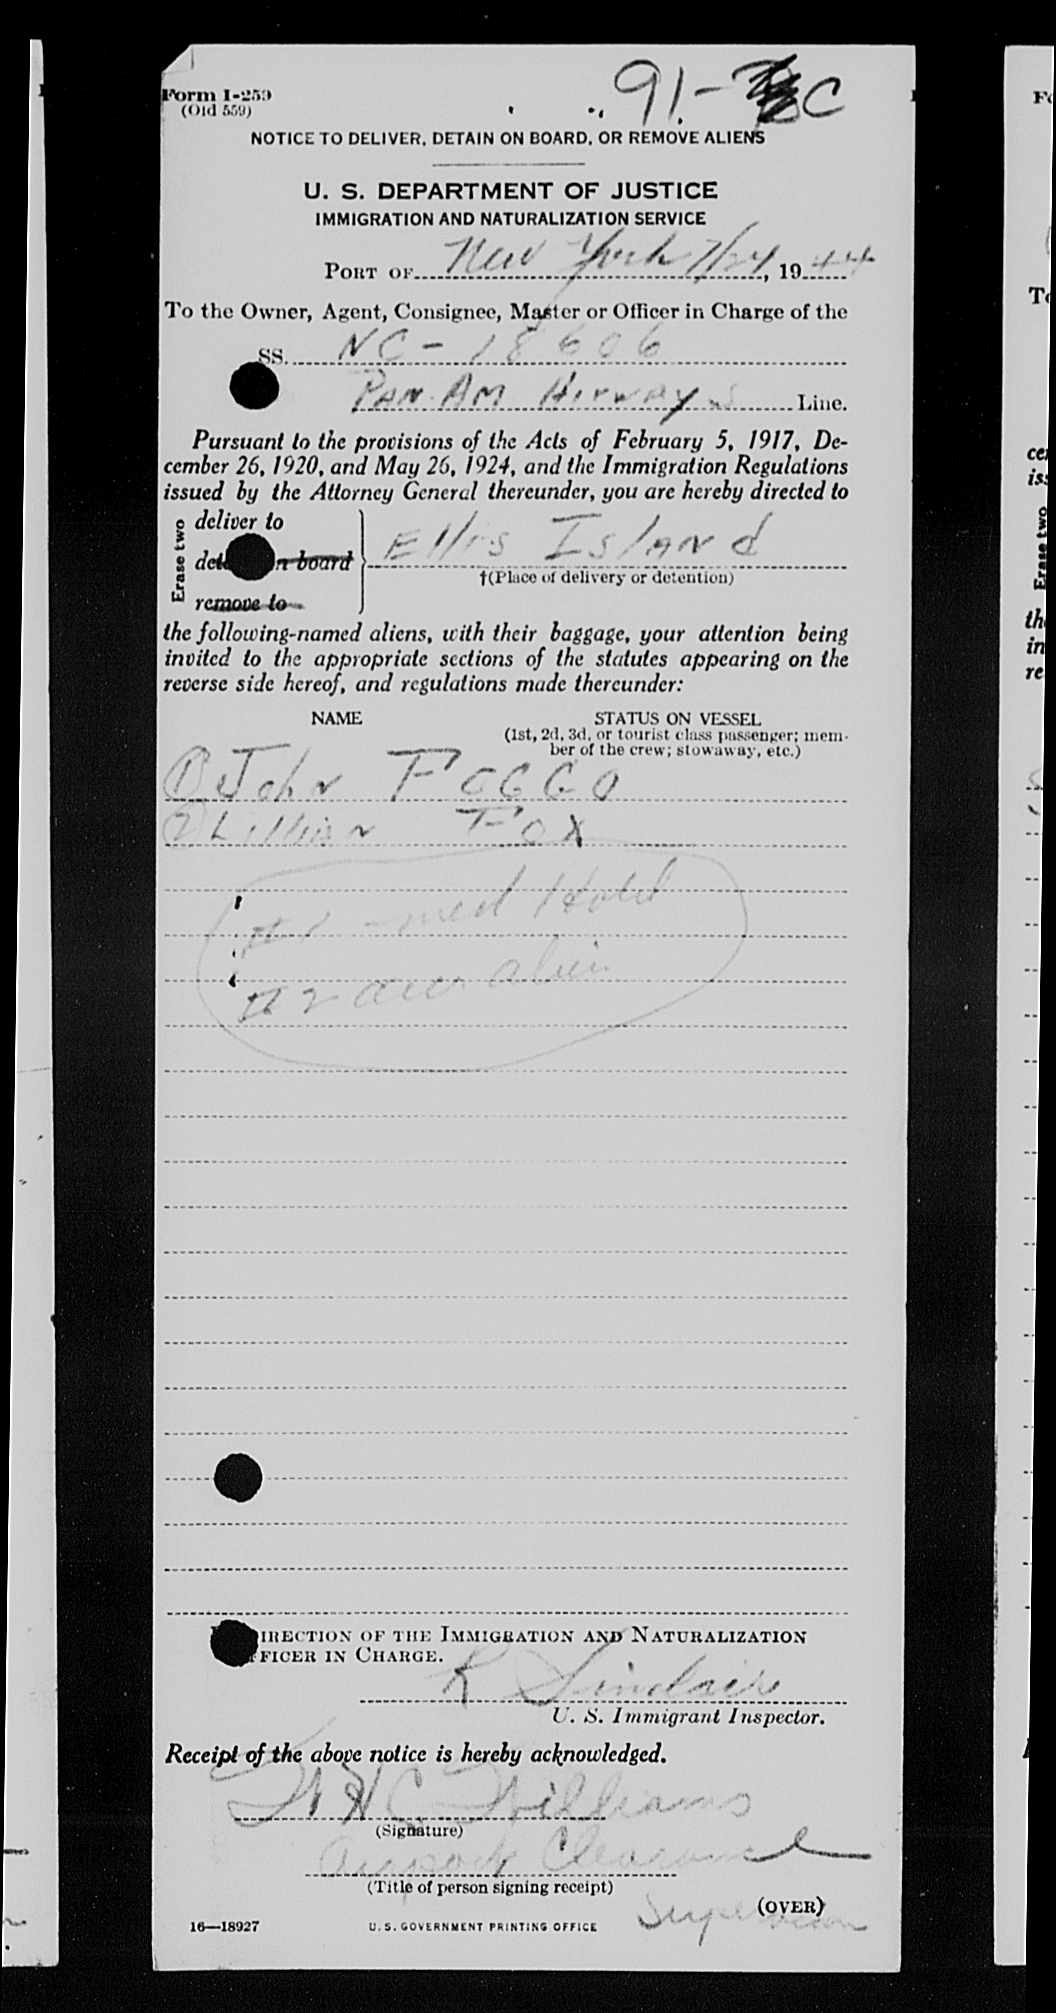 91- C
Form I-259
(Old 559)
NOTICE TO DELIVER, DETAIN ON BOARD, OR REMOVE ALIENS
U. S. DEPARTMENT OF JUSTICE
IMMIGRATION AND NATURALIZATION SERVICE
PORT OF New York 7/24, 1944
To the Owner, Agent, Consignee, Master or Officer in Charge of the
SS. NC-18606
PAN-AM AIRWAYS Line.
Pursuant to the provisions of the Acts of February 5, 1917, De-
cember 26, 1920, and May 26, 1924, and the Immigration Regulations
issued by the Attorney General thereunder, you are hereby directed to
Erase two
deliver to
det n board
remove to
Ellis Island
†(Place of delivery or detention)
the following-named aliens, with their baggage, your attention being
invited to the appropriate sections of the statutes appearing on the
reverse side hereof, and regulations made thereunder:
NAME STATUS ON VESSEL
(1st, 2d, 3d, or tourist class passenger; mem-
ber of the crew; stowaway, etc.)
1 John FOGGO
2 Lillian FOX
#1 - med Hold
#2 acc. alien
IRECTION OF THE IMMIGRATION AND NATURALIZATION
FFICER IN CHARGE.
R Sinclair
U. S. Immigrant Inspector.
Receipt of the above notice is hereby acknowledged.
W H C Williams
(Signature)
Airport Clearance
(Title of person signing receipt)
(OVER)
Supervisor
16—18927 U. S. GOVERNMENT PRINTING OFFICE